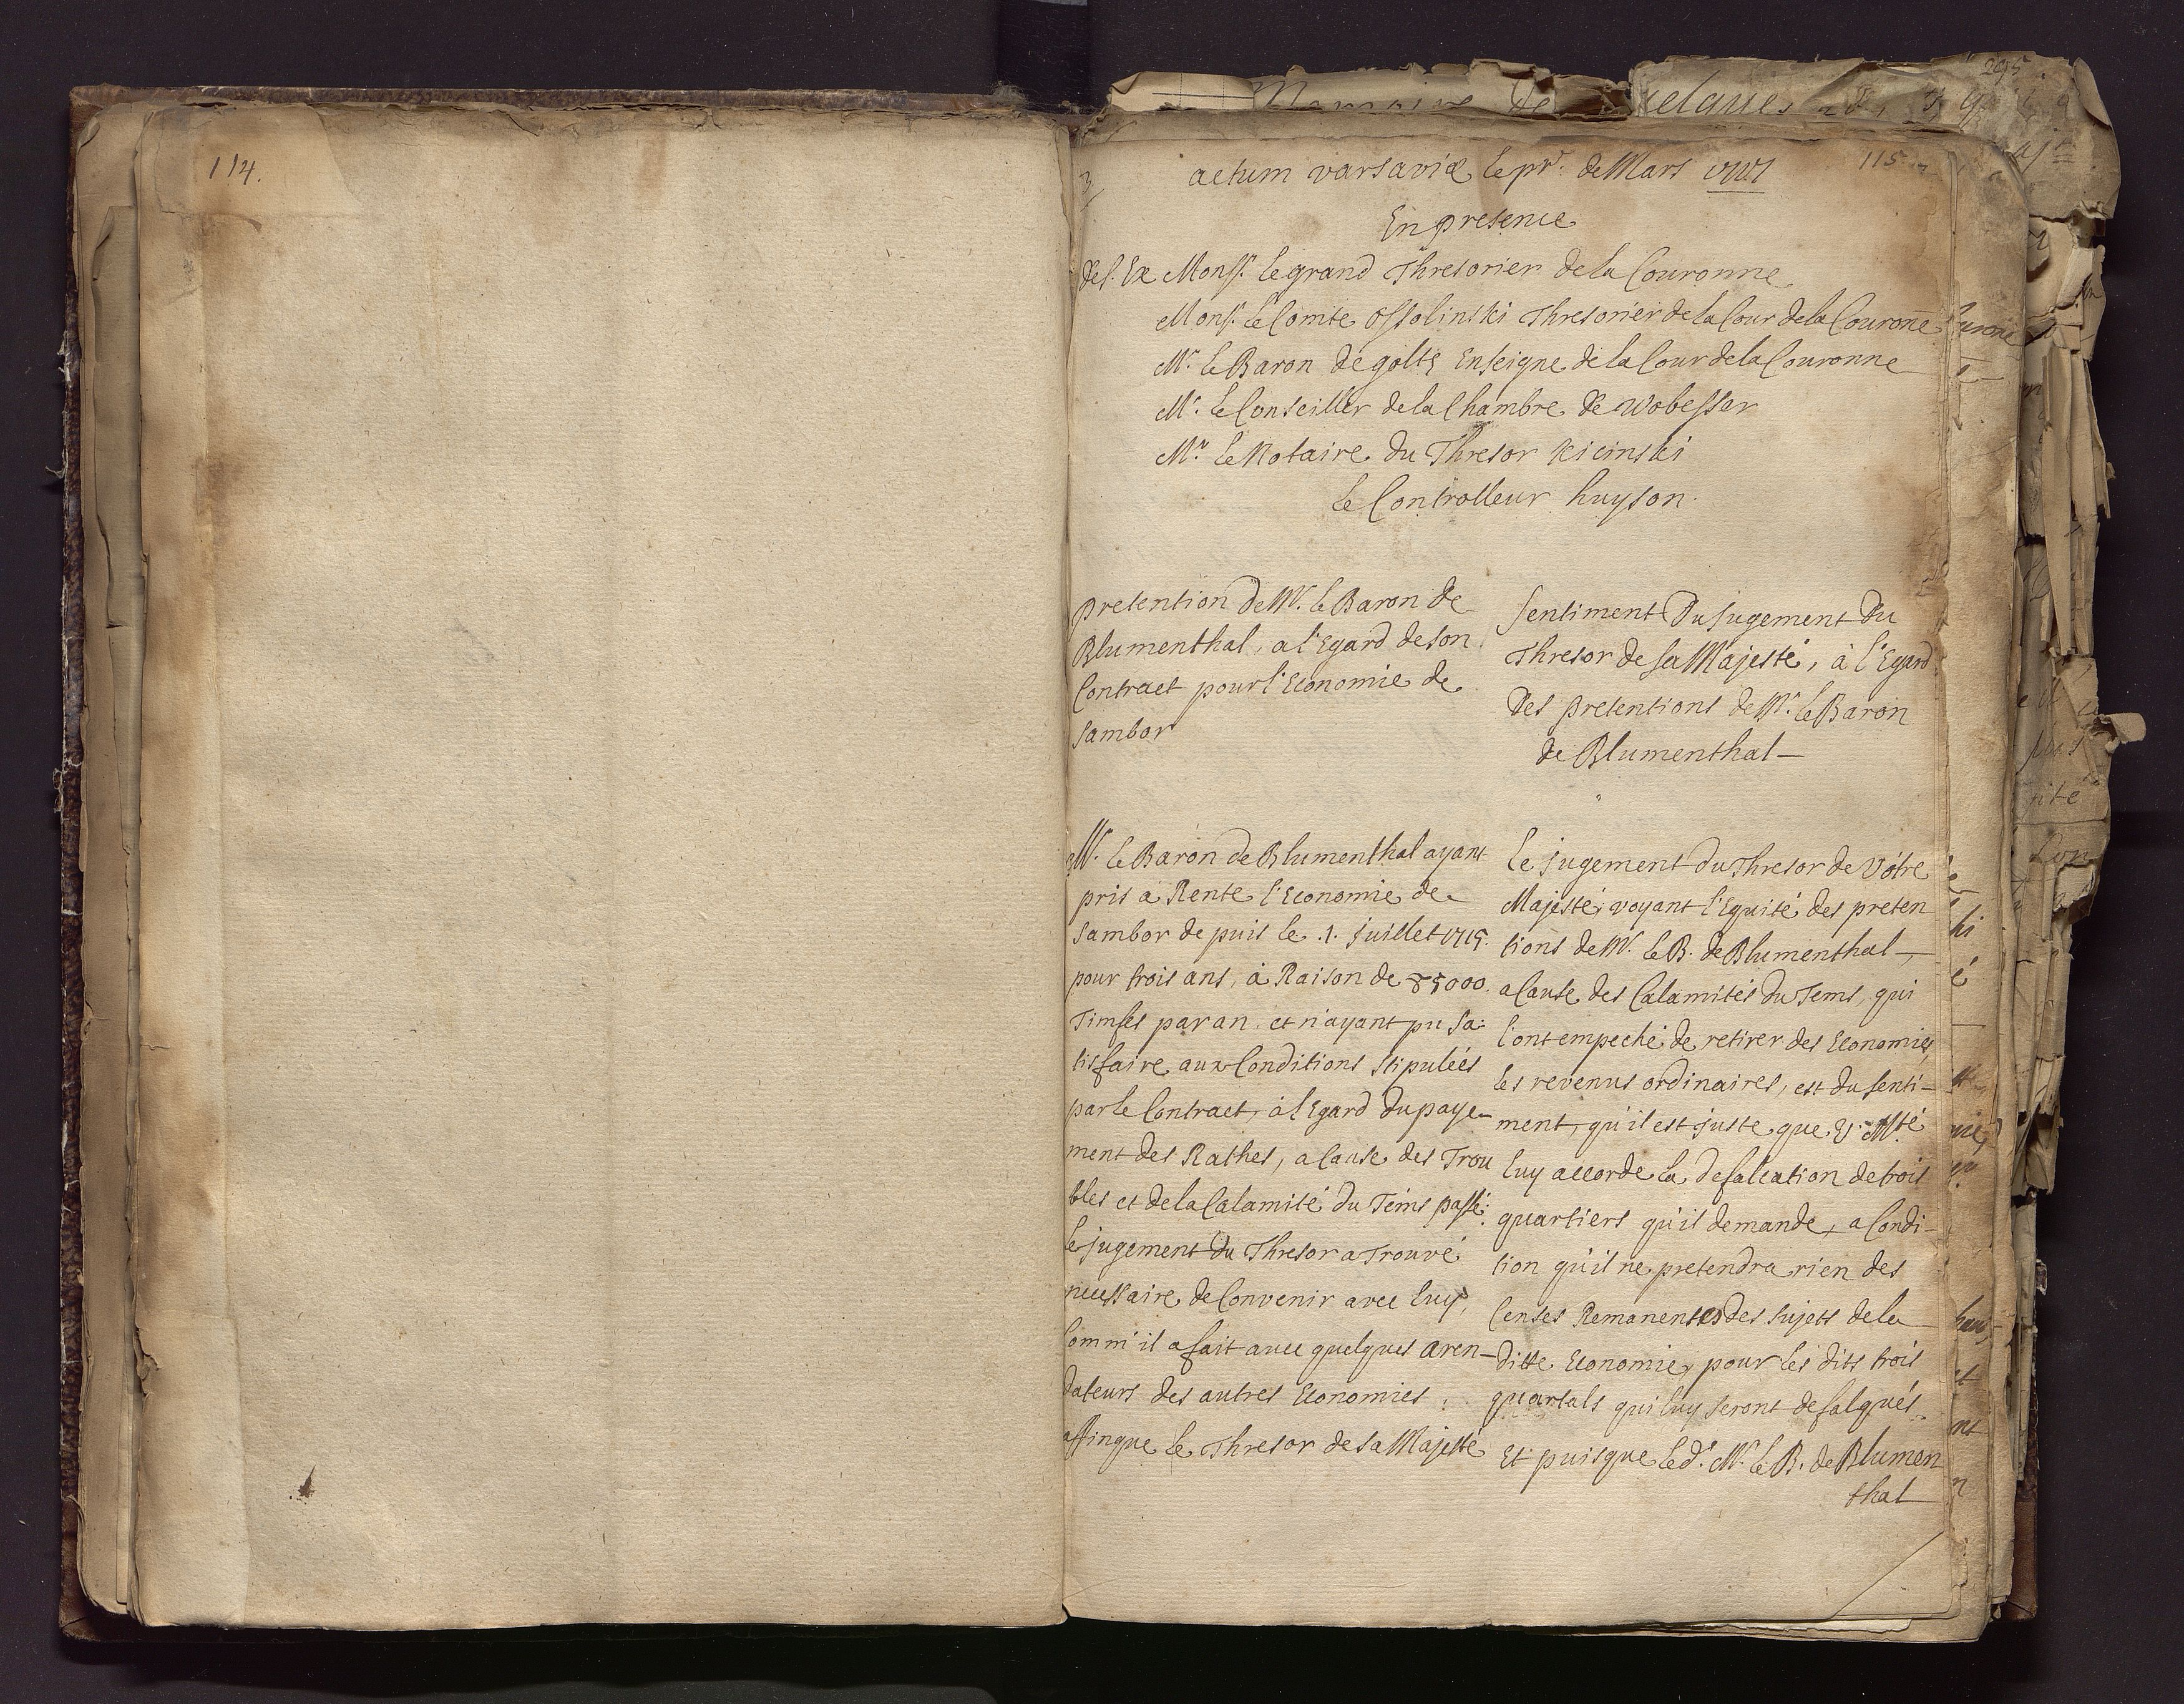 114.
115
3
actum varsaviæ le pr. de Mars
En presence
de S. Ex Monss. le grand Thresorier de la Couronne
Mons. le Comte Ossolinski Thresorier de la Cour de la Courone
Mr. le Baron de goltz Enseigne de la Cour de la Couronne
Mr. le Conseiller de la Chambre de Wobesser
Mr. le Notaire du Thresor Kicinski
le Controlleur huyson.
pretention de Mr. le Baron de
Blumenthal, a l'Egard de son
Contract pour l'Economie de
Sambor
Mr. le Baron de Blumenthal ayant
pris a Rente l'Economie de
Sambor de puis le .1. juillet 1715.
pour trois ans, à Raison de 85000.
Timfes par an. et n'ayant pu Sa:
tisfaire aux Conditions Stipulées
par le Contract, à l'Egard du paye-
ment des Rathes, a Cause des Trou
bles et de la Calamité du Tems passé:
le jugement du Thresor a Trouvé
necessaire de Convenir avec luy,
Comm' il a fait avec quelques aren-
dateurs des autres Economies :
affinque le Thresor de Sa Majesté
Sentiment Du Jugement Du
Thresor de Sa Majesté, à l'Egard
Des pretentions de Mr. le Baron
de Blumenthal—
le jugement du Thresor de Vôtre
Majesté, voyant l'Equité des preten
tions de Mr. le B. de Blumenthal,
a Cause des Calamités du Tems, qui
l'ont empeché de retirer des Economies
les revenus ordinaires, est du senti-
ment, qu'il est juste que V. Mté
luy accorde la defalcation de trois
quartiers qu'il demande, a Condi-
tion qu'il ne pretendra rien des
Censes Remanentes des sujets de la
ditte Economie, pour les dits trois
quartals qui luy seront defalqués.
Et puisque led. Mr. le B. de Blumen
thal